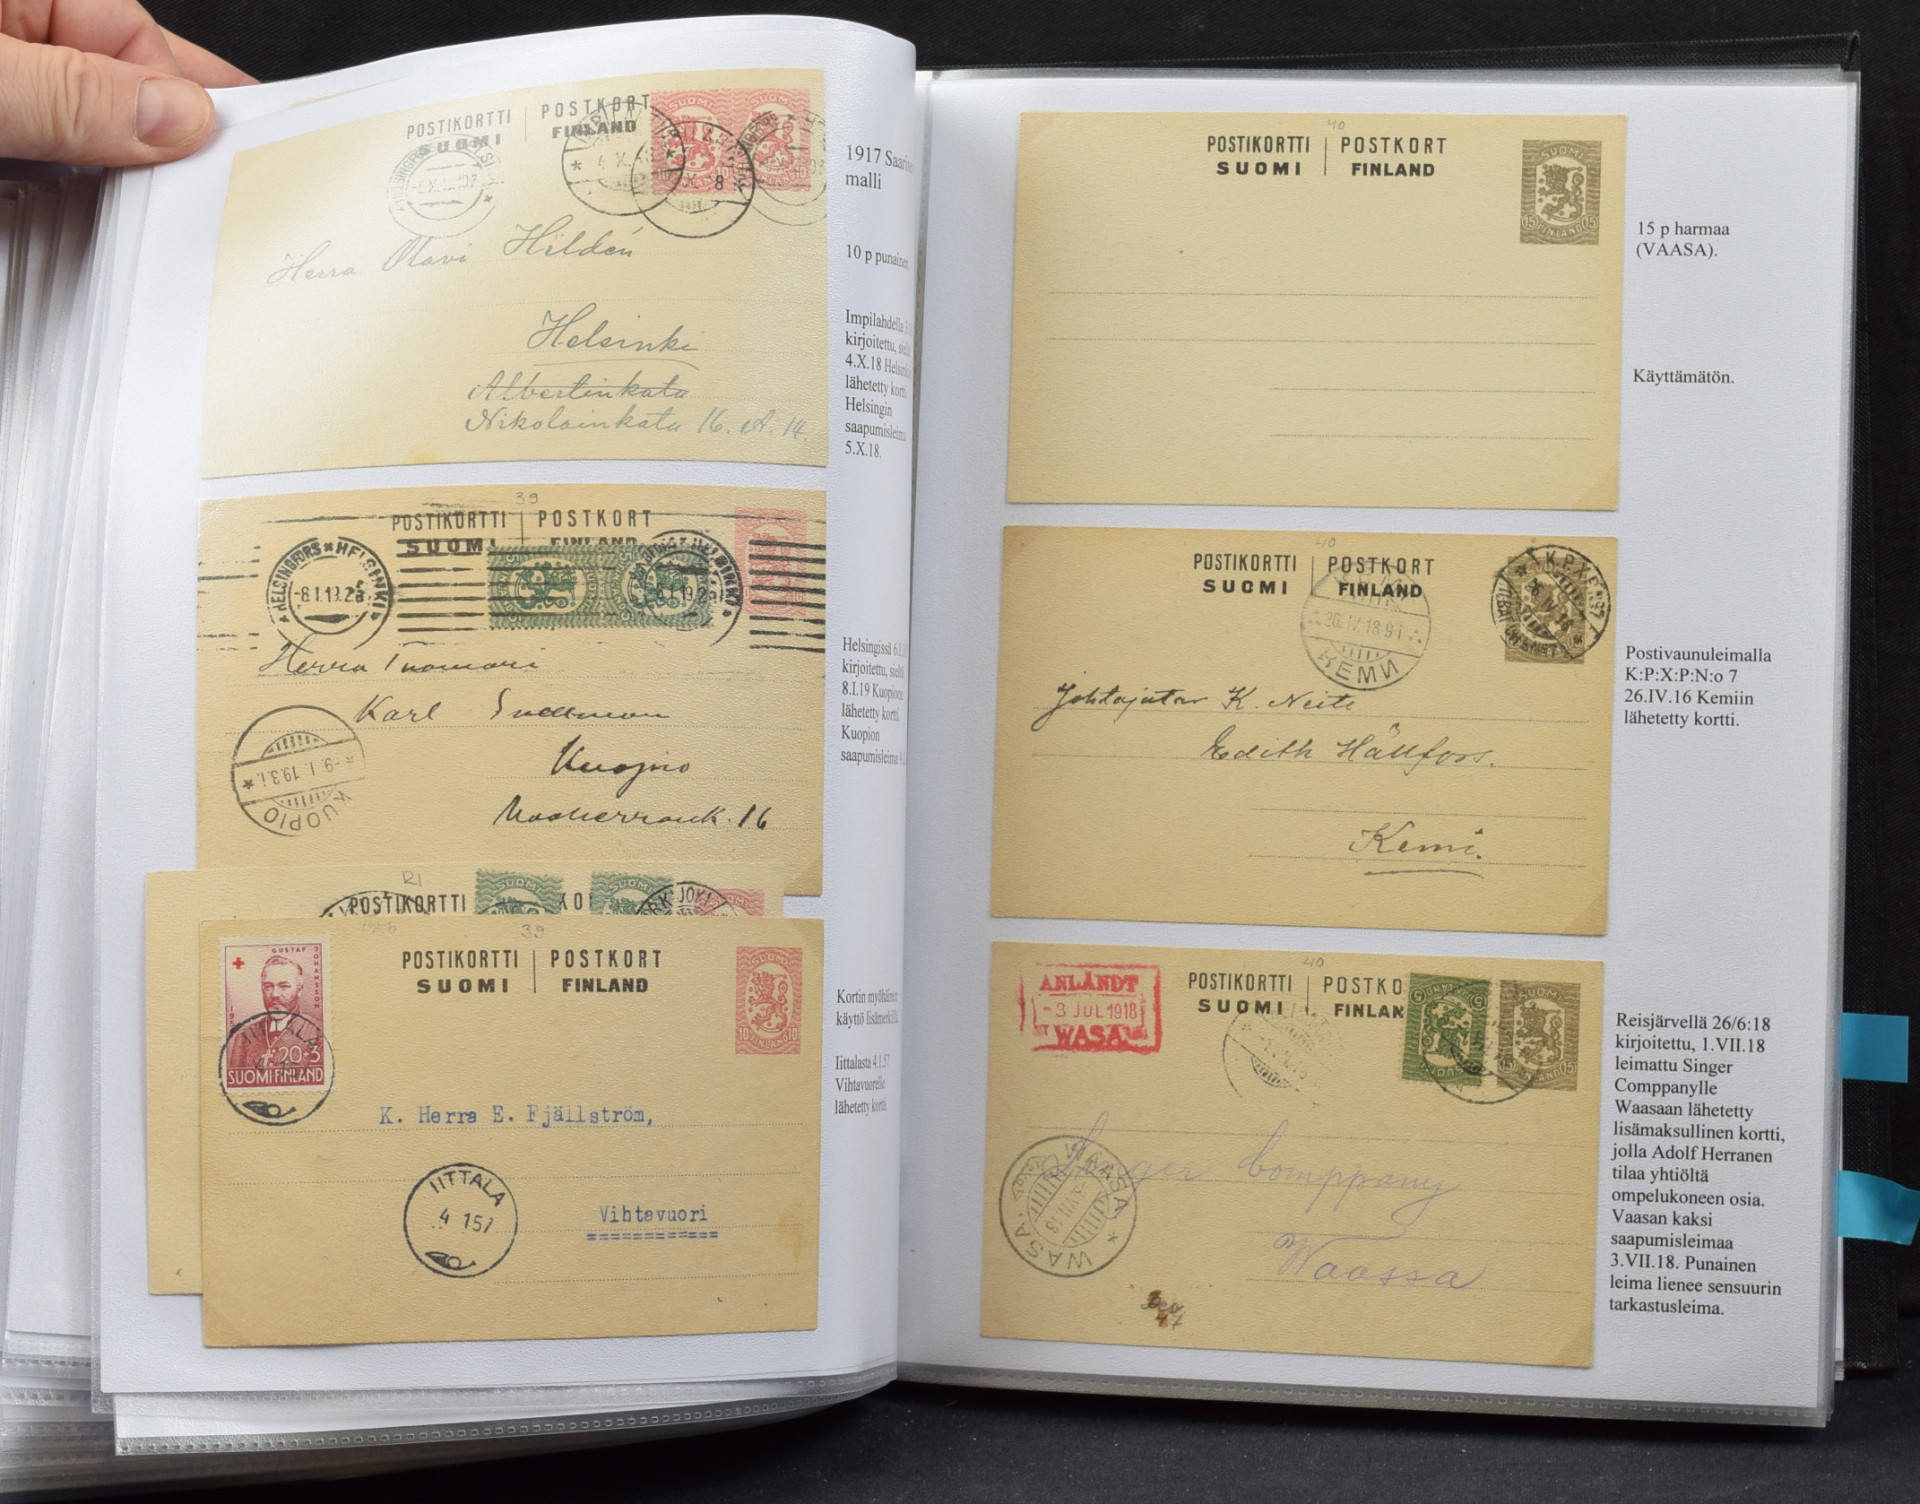 POSTIKORTTI | POSTKORT
SUOMI | FINLAND
SUOMI SUOMI
Herra Otavi Hildén
Helsinki
Albertinkatu
Nikolainkatu 16. A. 14.
1917
malli
10 p punainen
Impilahdella
kirjoitettu,
4.X.18
lähetetty kortti.
Helsingin
saapumisleima
5.X.18.
39
POSTIKORTTI | POSTKORT
SUOMI | FINLAND
HELSINGFORS * HELSINKI
-8.I.19.2
Herra
Karl
Kuopio
16
-9.I.19.3.i
KUOPIO
Helsingissä
kirjoitettu,
8.I.19 Kuopioon
lähetetty kortti.
Kuopion
saapumisleima
POSTIKORTTI
SUOMI
SUOMI
JOKI
39
POSTIKORTTI | POSTKORT
SUOMI | FINLAND
GUSTAF JOHANSSON
20+3
SUOMI FINLAND
SUOMI
10 10
FINLAND
K. Herra E. Fjällström,
IITTALA
4 1 57
Vihtavuori
Kortin myöhäinen
käyttö lisämerkillä.
Iittalasta 4.1.57
Vihtavuorelle
lähetetty kortti.
40
POSTIKORTTI | POSTKORT
SUOMI | FINLAND
SUOMI
15 15
FINLAND
15 p harmaa
(VAASA).
Käyttämätön.
40
POSTIKORTTI | POSTKORT
SUOMI | FINLAND
26.IV.18.9 i
КЕМИ
Johtajatar K. Neiti
Edith Hällfors.
Kemi.
Postivaunuleimalla
K:P:X:P:N:o 7
26.IV.16 Kemiin
lähetetty kortti.
40
POSTIKORTTI | POSTKO
SUOMI | FINLAN
ANLÄNDT
-3 JUL 1918
WASA
SUOMI
Singer Comppany
Waassa
WAASA * WASA
-3.VII.18
Reisjärvellä 26/6:18
kirjoitettu, 1.VII.18
leimattu Singer
Comppanylle
Waasaan lähetetty
lisämaksullinen kortti,
jolla Adolf Herranen
tilaa yhtiöltä
ompelukoneen osia.
Vaasan kaksi
saapumisleimaa
3.VII.18. Punainen
leima lienee sensuurin
tarkastusleima.